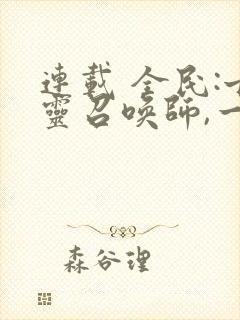 連載 全民:
靈召喚師,一
森谷理